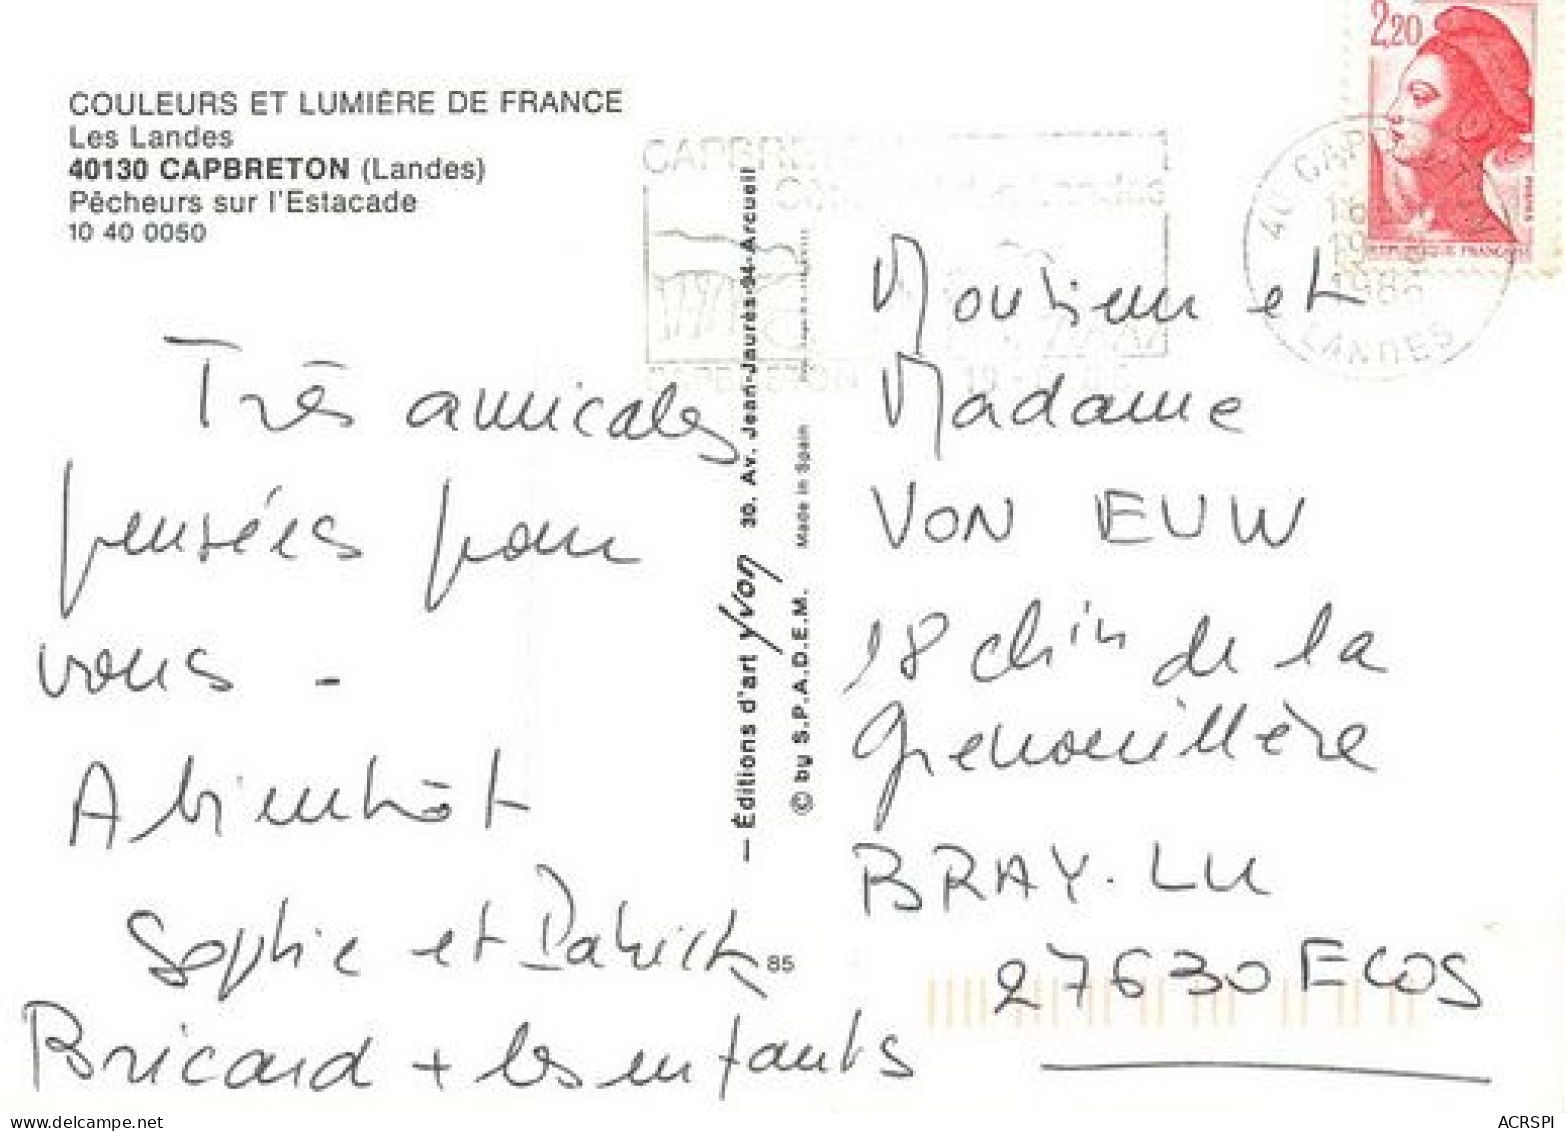 COULEURS ET LUMIÈRE DE FRANCE
Les Landes
40130 CAPBRETON (Landes)
Pêcheurs sur l'Estacade
10 40 0050
Très amicales
pensées pour
vous -
A bientôt
Sophie et Patrick
Bricard + les enfants
— Éditions d'art yvon 30. Av. Jean-Jaurès-94-Arcueil
© by S.P.A.D.E.M. Made in Spain
85
2,20
REPUBLIQUE FRANÇAISE
40 CAPBRETON
LANDES
CAPBRETON
Monsieur et
Madame
VON EUW
18 chin de la
Grenouillère
BRAY. LU
27630 ECOS
delcampe.net
ACRSPI